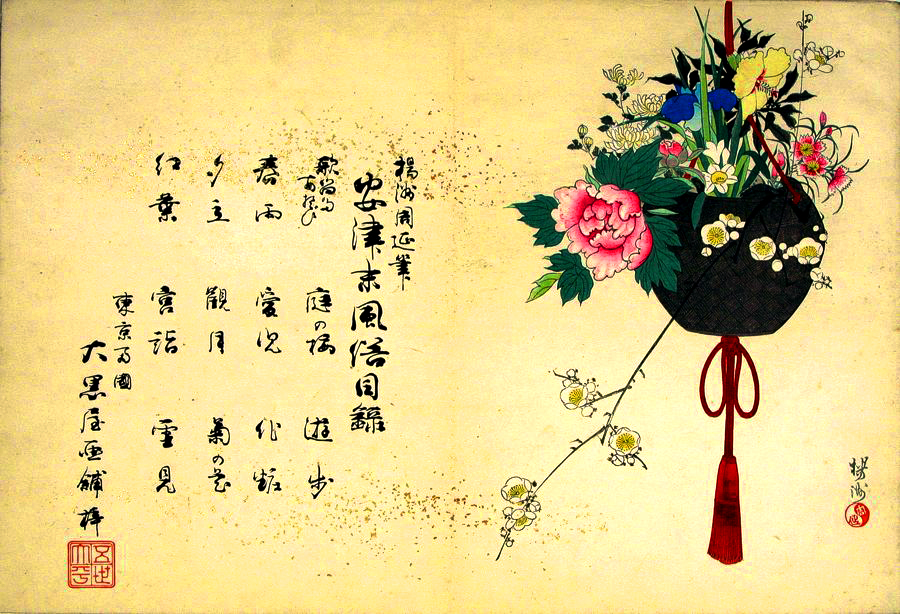 楊洲周延筆
安津末風俗目録
歌留多あそび 庭の梅 遊歩
春雨 愛児 化粧
夕立 觀月 菊の花
紅葉 宮詣 雪見
東京両國
大黒屋画舗梓
五世大平
楊洲